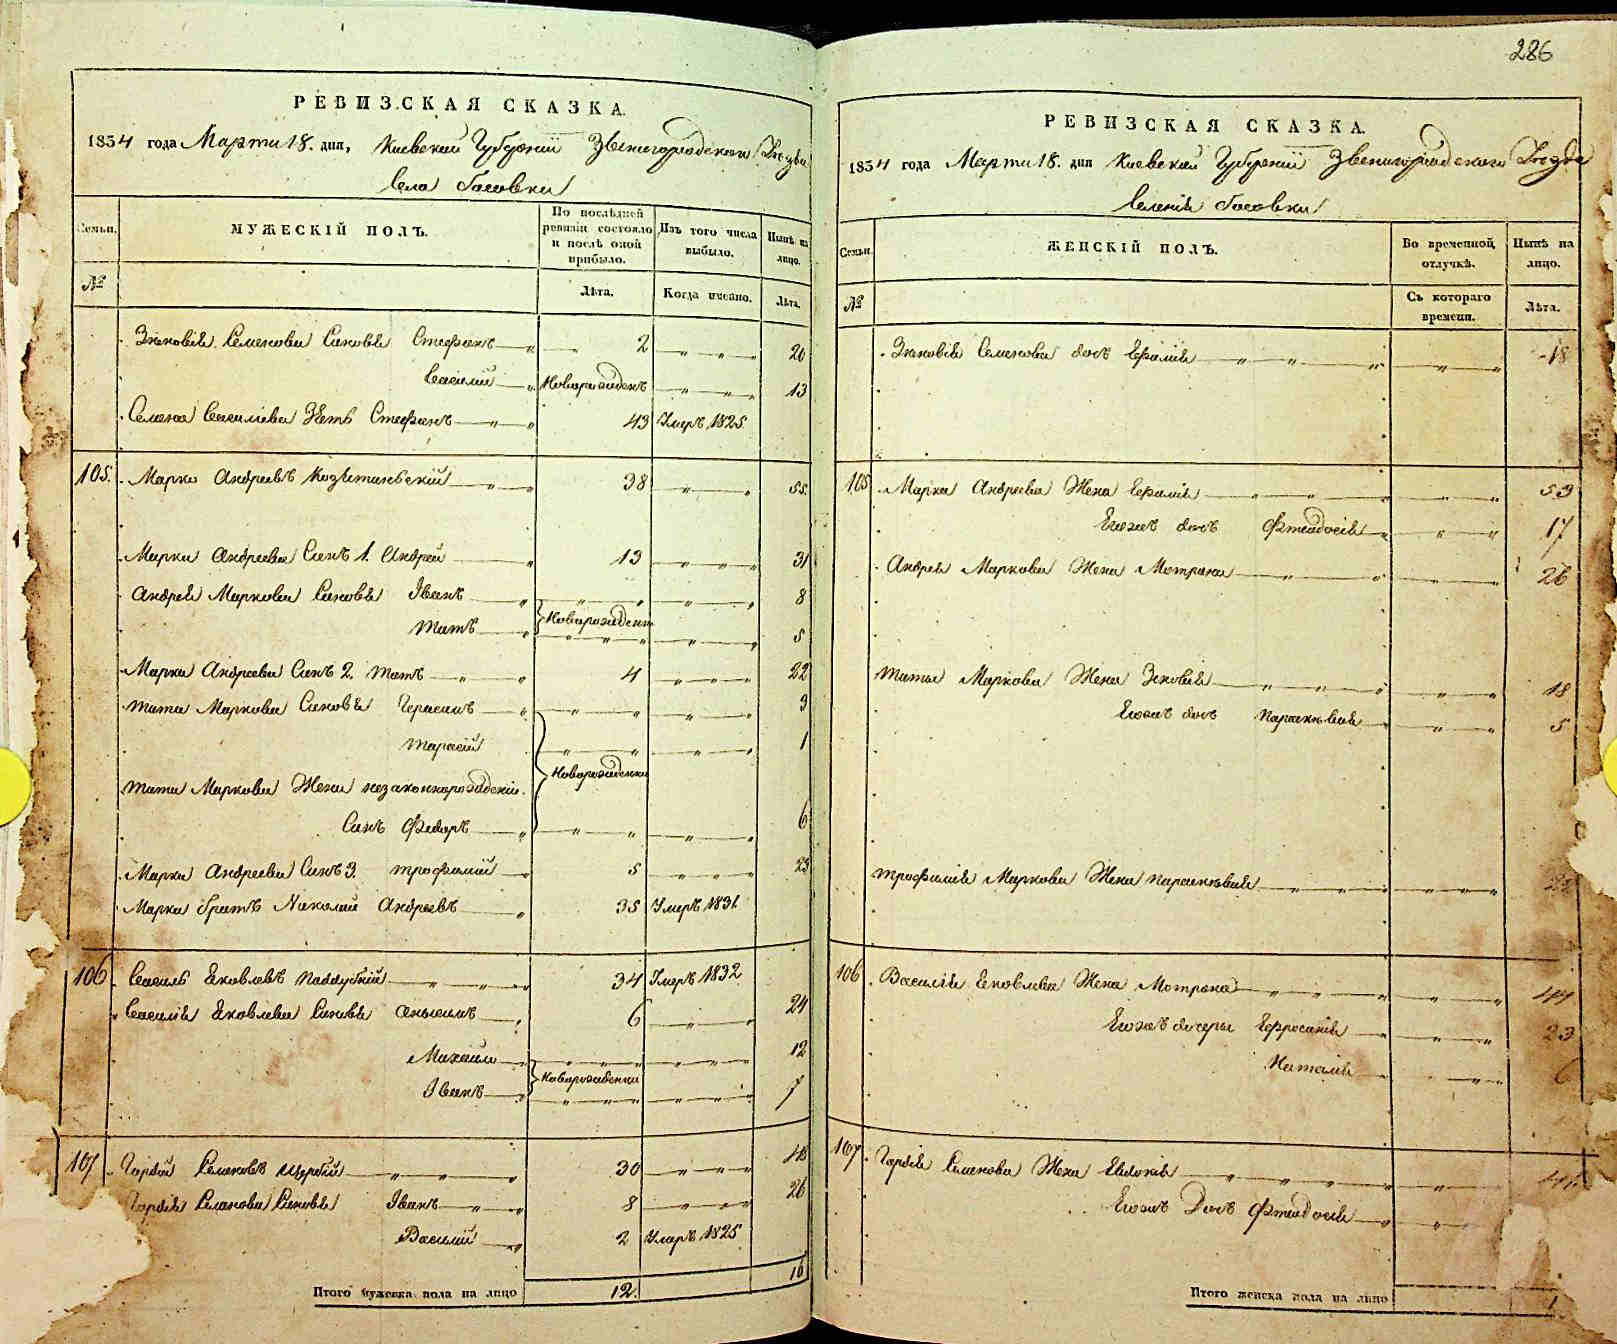 286
РЕВИЗСКАЯ СКАЗКА.
1834 года Марта 18. дня, Киевской Губернии Звенигородскаго Уезда
Села Гасовки
Семьи.
МУЖЕСКІЙ ПОЛЪ.
По послѣдней ревизіи состояло и послѣ оной прибыло.
Изъ того числа выбыло.
Нынѣ на лицо.
№
Лѣта.
Когда имянно.
Лѣта.
Зѣновія Семенова Синовья Стефанъ 2 20
Василий Новорожденъ 13
Семена Василіева Зять Стефанъ 43 Умръ 1825
105. Марко Андреевъ 38 55
Марка Андреева Синъ 1. Андрей 13 31
Андрея Маркова Синовья Іванъ 8
Новорожден
Титъ 5
Марка Андреева Синъ 2. Титъ 4 22
Тита Маркова Синовья Герасимъ 3
Тарасій 1
Новорожденни
Тита Маркова Жени незаконнорожденій
Синъ Федоръ 6
Марка Андреева Синъ 3. Трофимий 5 23
Марка братъ Николай Андреевъ 35 Умръ 1831
106 Василь Яковлевъ Поддубній 34 Умръ 1832
Василія Яковлева Синовья Анисимъ 6 24
Михайло 12
Новорожденни
Іванъ 7
107 Гордій Семеновъ 30 48
Гордія Семенова Синовья Іванъ 8 26
Василий 2 Умръ 1825
16
Итого мужеска пола на лицо 12.
РЕВИЗСКАЯ СКАЗКА.
1834 года Марта 18. дня Киевской Губернии Звенигородскаго Уезда
Селенія Гасовки
Семьи.
ЖЕНСКІЙ ПОЛЪ.
Во временной отлучкѣ.
Нынѣ на лицо.
№
Съ котораго времени.
Лѣта.
Зѣновія Семенова дочь Ефимія 18
105 Марка Андреева Жена Ефимія 53
Егожъ дочь Фтеодосія 17
Андрея Маркова Жена Мотрона 26
Тита Маркова Жена Зѣновія 18
Егожъ дочь Параскѣвія 5
Трофимія Маркова Жена Параскѣвія
106 Василія Яковлева Жена Мотрона 44
Егожъ дочеры Ефросинія 23
Наталія 6
107 Гордія Семенова Жена Евдокія
Егожъ Дочь Фтеодосія
Итого женска пола на лицо